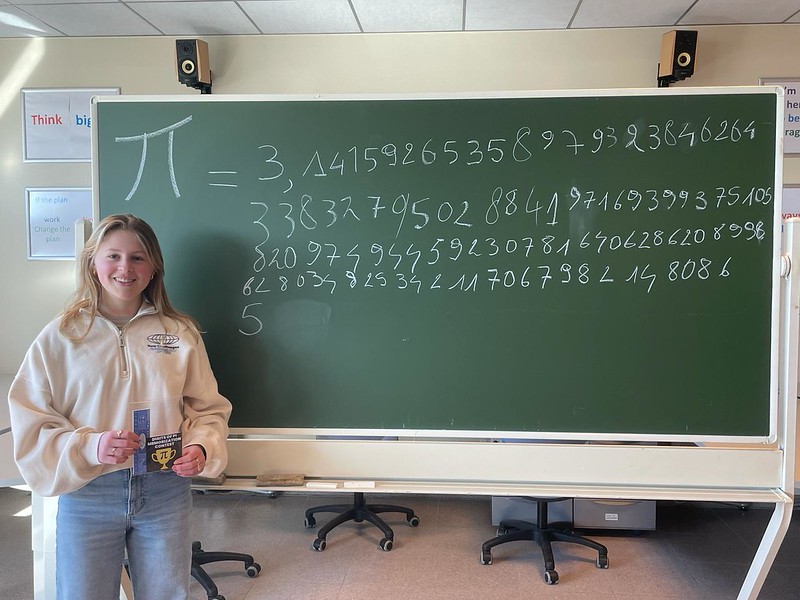 Think big
If the plan
work
Change the
plan
π = 3,14159265358979323846264
3383279502884197169399375105
820974944592307816406286208998
628034825342117067982148086
5
DIGITS OF PI
MEMORIZATION
CONTEST
π